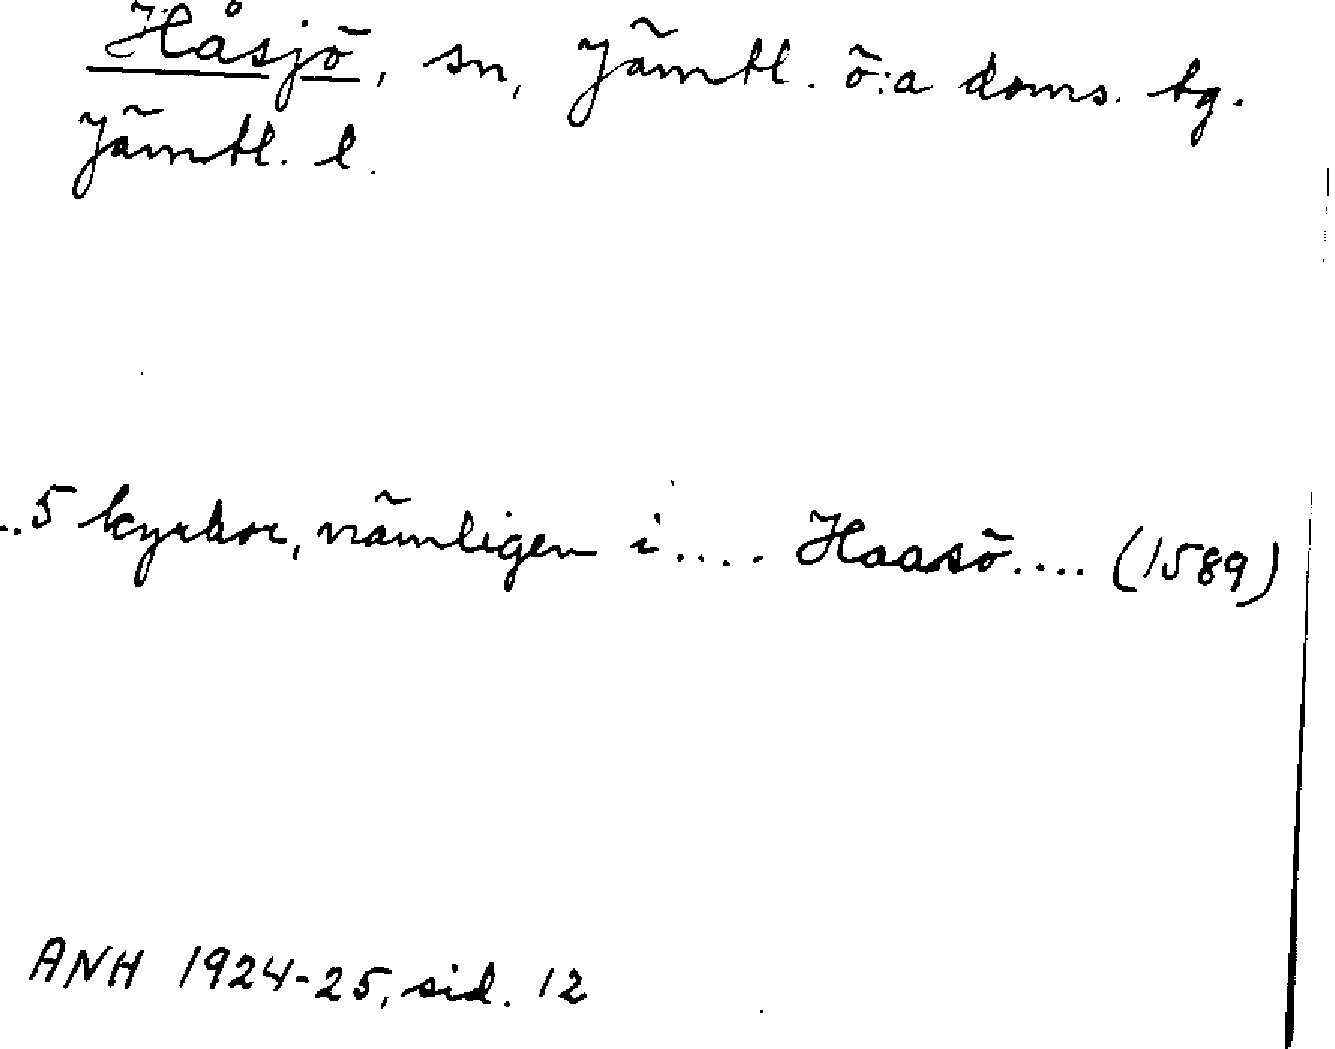 Håsjö, sn, Jämtl. ö:a doms. tg.
Jämtl. l.
..5 kyrkor, nämligen i.... Haasö.... (1589)
ANH 1924-25, sid. 12